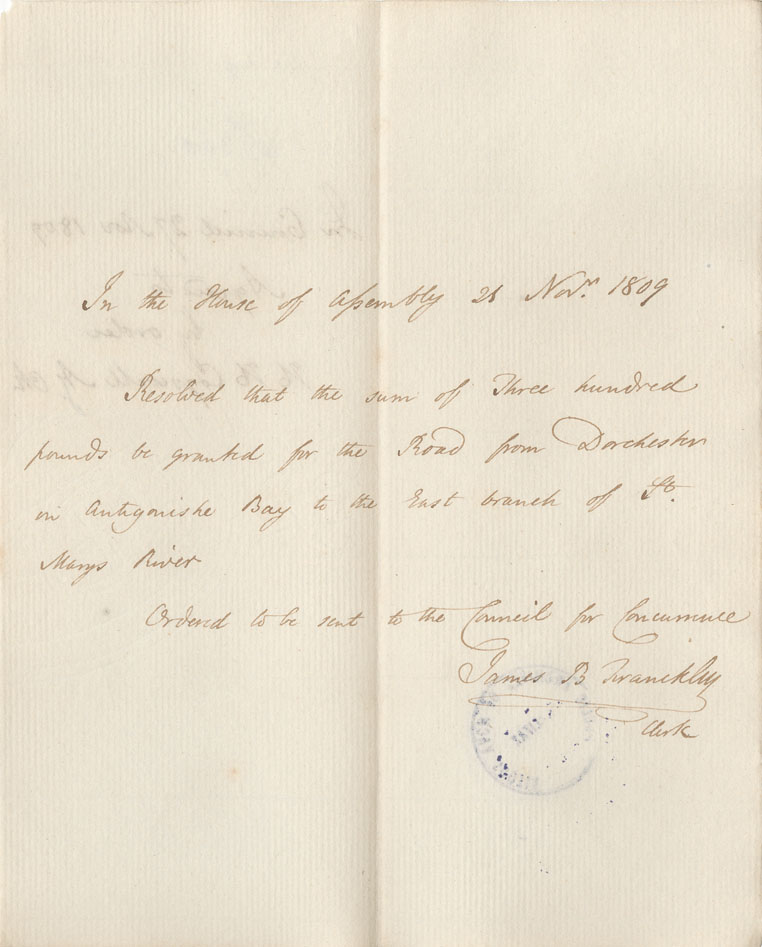 In the House of Assembly 28 Novr. 1809
Resolved that the sum of Three hundred
pounds be granted for the Road from Dorchester
on Antigonishe Bay to the East branch of St.
Marys River
Ordered to be sent to the Council for Concurrence
James B Franckly
Clerk
In Council 27 Nov 1809
by order